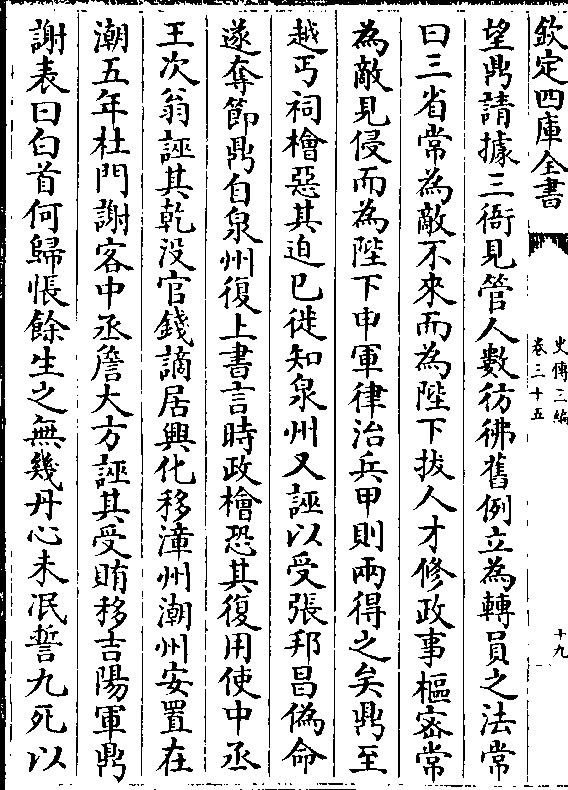 欽定四庫全書
史傳三編
卷三十五
十九
望鼎請據三衙見管人數彷彿舊例立為轉員之法常
曰三省常為敵不來而為陛下拔人才修政事樞密常
為敵見侵而為陛下申軍律治兵甲則兩得之矣鼎至
越丐祠檜惡其迫已徙知泉州又誣以受張邦昌偽命
遂奪節鼎自泉州復上書言時政檜恐其復用使中丞
王次翁誣其乾没官錢謫居興化移漳州潮州安置在
潮五年杜門謝客中丞詹大方誣其受賄移吉陽軍鼎
謝表曰白首何歸悵餘生之無幾丹心未泯誓九死以